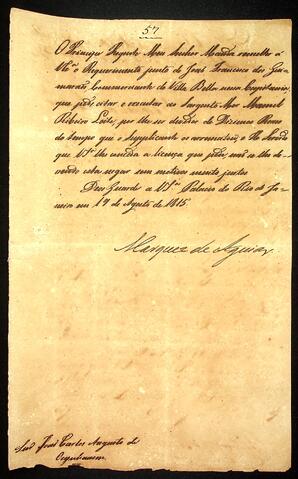 57
O Principe Regente Meu Senhor Manda remetter á
VSª o Requerimento junto de José Francisco dos Gui
maraens Commerciante de Villa Bella nessa Capitania,
que pede, citar e executar ao Sargento Mor Manoel
Ribeiro Leite, por lhe ser devedor de Dizimos Reaes
do tempo que o Supplicante os arrematou; E He Servido
que VSª lhe conceda a licença que pede, não a lhe de
vendo esta negar sem motivos muito justos
Deos Guarde a VSª Palacio do Rio de Ja
neiro em 19 de Agosto de 1815
Marquez de Aguiar
Snr João Carlos Augusto de
Oeynhausen